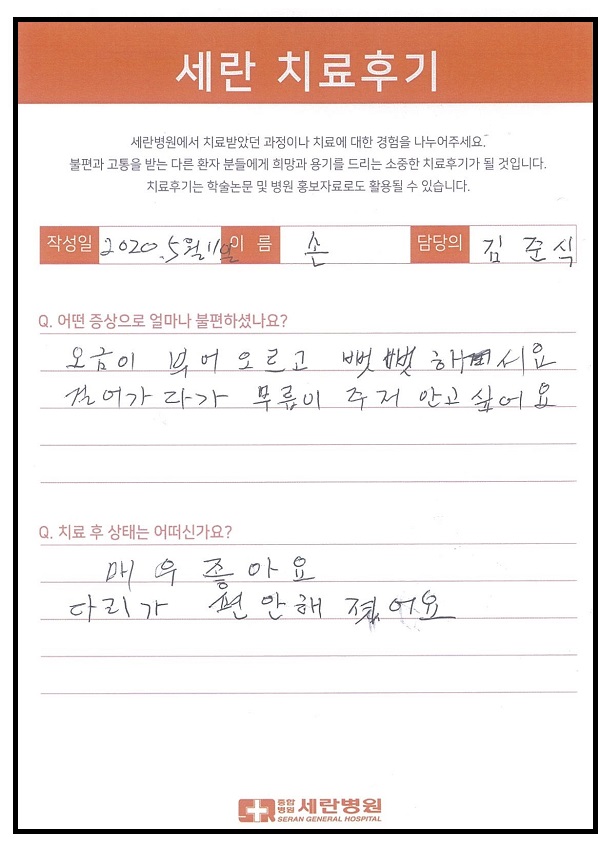 세란 치료후기
세란병원에서 치료받았던 과정이나 치료에 대한 경험을 나누어주세요.
불편과 고통을 받는 다른 환자 분들에게 희망과 용기를 드리는 소중한 치료후기가 될 것입니다.
치료후기는 학술논문 및 병원 홍보자료로도 활용될 수 있습니다.
작성일 2020.5월11일 이 름 손 담당의 김준식
Q. 어떤 증상으로 얼마나 불편하셨나요?
오금이 부어 오르고 뻣뻣해 시요
걸어가 다가 무릎이 주저 안고 싶어요
Q. 치료 후 상태는 어떠신가요?
매우 좋아요
다리가 편안해 졌어요
종합병원 세란병원
SERAN GENERAL HOSPITAL